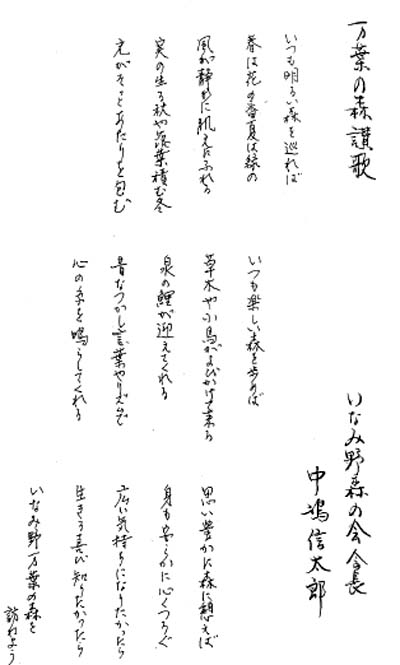 万葉の森讃歌
いなみ野森の会会長
中嶋信太郎
いつも明るい森を巡れば
春は花の香夏は緑の
風が静かに肌えにふれる
実の生る秋や落葉積む冬
そっとあたりを包む
いつも楽しい森を歩めば
草木や小鳥がよびかけ来る
泉の鯉が迎えてくれる
昔なつかし言葉や
心の琴を鳴らしてくれる
思い豊かに森に憩えば
身もやすらかに心くつろぐ
広い気持ちになりたかったら
生きる喜び知りたかったら
いなみ野万葉の森を
訪れよう